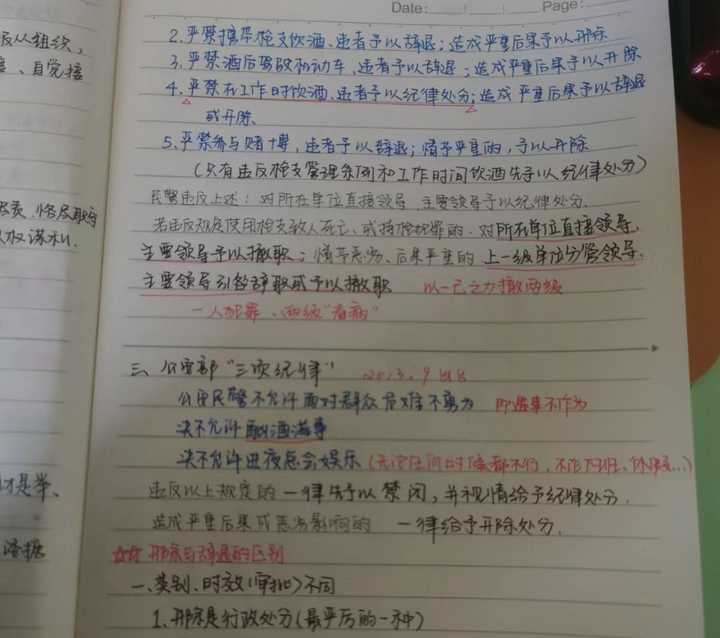 Date:
Page:
及从组织,
、自觉接
2.严禁携带枪支饮酒、违者予以辞退;造成严重后果予以开除
3.严禁酒后驾驶机动车,违者予以辞退;造成严重后果予以开除
4.严禁在工作时饮酒、违者予以纪律处分;造成严重后果予以辞退
或开除、
5.严禁参与赌博,违者予以辞退;情节严重的,予以开除
(只有违反枪支管理条例和工作时间饮酒先予以纪律处分)
民警违反上述:对所在单位直接领导、主要领导予以纪律处分.
若违反规定使用枪支致人死亡、或持枪犯罪的、对所在单位直接领导、
主要领导予以撤职;情节恶劣、后果严重的 上一级单位分管领导、
主要领导引咎辞职或予以撤职 以一己之力撤两级
一人犯罪、两级"看病"
三、公安部"三项纪律" 2013.9
公安民警不允许面对群众危难不勇为 即遇事不作为
决不允许酗酒滋事
决不允许进夜总会娱乐(无论在何时候都不行,不论下班、休假...)
违反以上规定的一律先予以禁闭,并视情给予纪律处分.
造成严重后果或恶劣影响的 一律给予开除处分.
☆☆ 开除与辞退的区别
一、类别、时效(审批)不同
1.开除是行政处分(最严厉的一种)